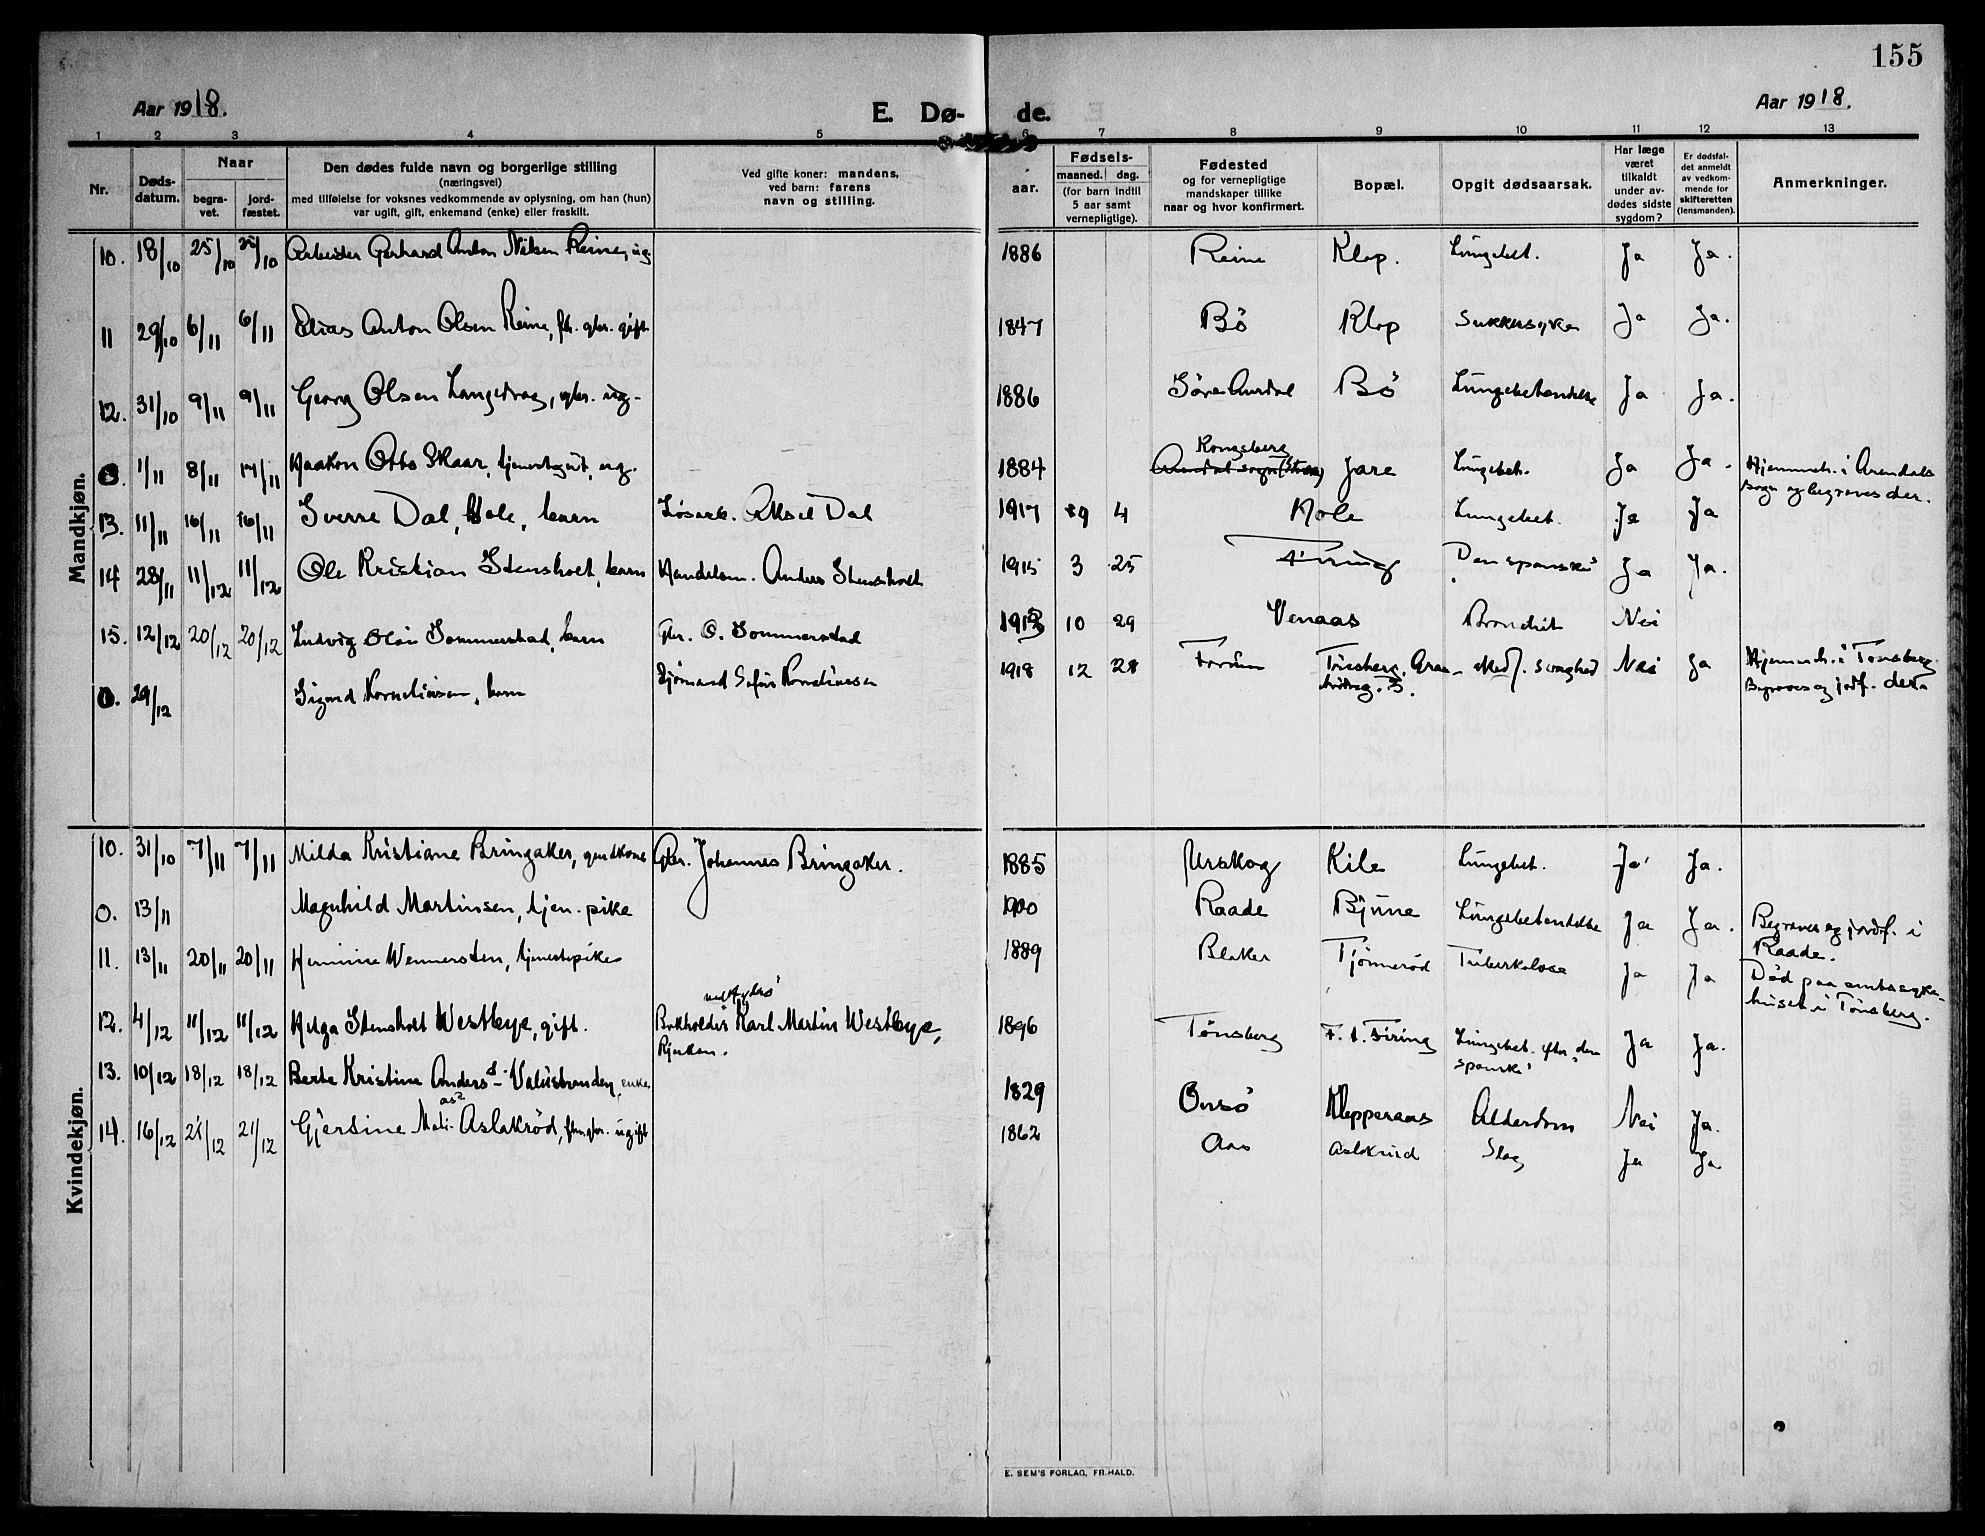 155
Aar 1918.
E. Dø- de.
Aar 1918.
1 2 3 4 5 6 7 8 9 10 11 12 13
Nr.
Døds-
datum.
Naar
begra-
vet.
jord-
fæstet.
Den dødes fulde navn og borgerlige stilling
(næringsvei)
med tilføielse for voksnes vedkommende av oplysning, om han (hun)
var ugift, gift, enkemand (enke) eller fraskilt.
Ved gifte koner: mandens,
ved barn: farens
navn og stilling.
Fødsels-
aar.
maaned. dag.
(for barn indtil
5 aar samt
vernepligtige).
Fødested
og for vernepligtige
mandskaper tillike
naar og hvor konfirmert.
Bopæl.
Opgit dødsaarsak.
Har læge
været
tilkaldt
under av-
dødes sidste
sygdom?
Er dødsfal-
det anmeldt
av vedkom-
mende for
skifteretten
(lensmanden).
Anmerkninger.
Mandkjøn.
10. 18/10 25/10 25/10 Arbeider Gerhard Anton Nilsen Reine, ug. 1886 Reine Klop. Lungebet. Ja Ja.
11 29/10 6/11 6/11 Elias Anton Olsen Reine, fh. gbr. gift 1847 Bö Klop Sukkersyke Ja Ja.
12. 31/10 9/11 9/11 Georg Olsen Langedrag, gbr. ug. 1886 Söre Aurdal Bö Lungebetendelse Ja Ja.
0 1/11 8/11 17/11 Haakon Otto Skaar, tjenestegut, ug. 1884 Kongsberg Jare Lungebet. Ja Ja. Hjemmeh. i Arendals
sogn og begraves der.
13. 11/11 16/11 16/11 Sverre Dal, Hole, barn Løsarb. Aksel Dal 1917 9 4 Hole Lungebet. Ja Ja
14 28/11 11/12 11/12 Ole Kristian Stensholt, barn Handelsm. Anders Stensholt 1915 3 25 Firing "Den spanske" Ja Ja.
15. 12/12 20/12 20/12 Ludvig Olai Sommerstad, barn Gbr. O. Sommerstad 1913 10 29 Venaas Bronchit Nei
0. 29/12 Sigurd Korneliussen, barn Sjømand Sofus Korneliussen 1918 12 28 Forum Tønsberg, Graa- Medf. svaghed Nei Ja Hjemmeh. i Tønsberg.
Begraves og jordf. der.
Kvindekjøn.
10. 31/10 7/11 7/11 Milda Kristiane Bringaker, gaardkone Gbr. Johannes Bringaker. 1885 Urskog Kile Lungebet. Ja Ja.
0. 13/11 Magnhild Martinsen, tjen. pike 1900 Raade Bjune Lungebetendelse Ja Ja. Begraves og jordf. i
Raade.
11. 13/11 20/11 20/11 Hermine Wennersten, tjenestepike 1889 Blaker Tjönneröd Tuberkulose Ja Ja Død paa amtssyke-
huset i Tönsberg.
12. 4/12 11/12 11/12 Helga Stensholt Westbye, gift. Bokholder Karl Martin Westbye,
Rjukan. 1896 Tönsberg F. t. Firing Lungebet. efter "den
spanske" Ja Ja.
13. 10/12 18/12 18/12 Berte Kristine Andersd. Valüstranden, enke 1829 Onsö Klopperaas Alderdom Nei Ja.
14. 16/12 21/12 21/12 Gjersine Mati. Aslakröd, fhv. gbr. ugift 1862 Aas Aslakrud Slag Ja Ja
E. SEM'S FORLAG, FR.HALD.